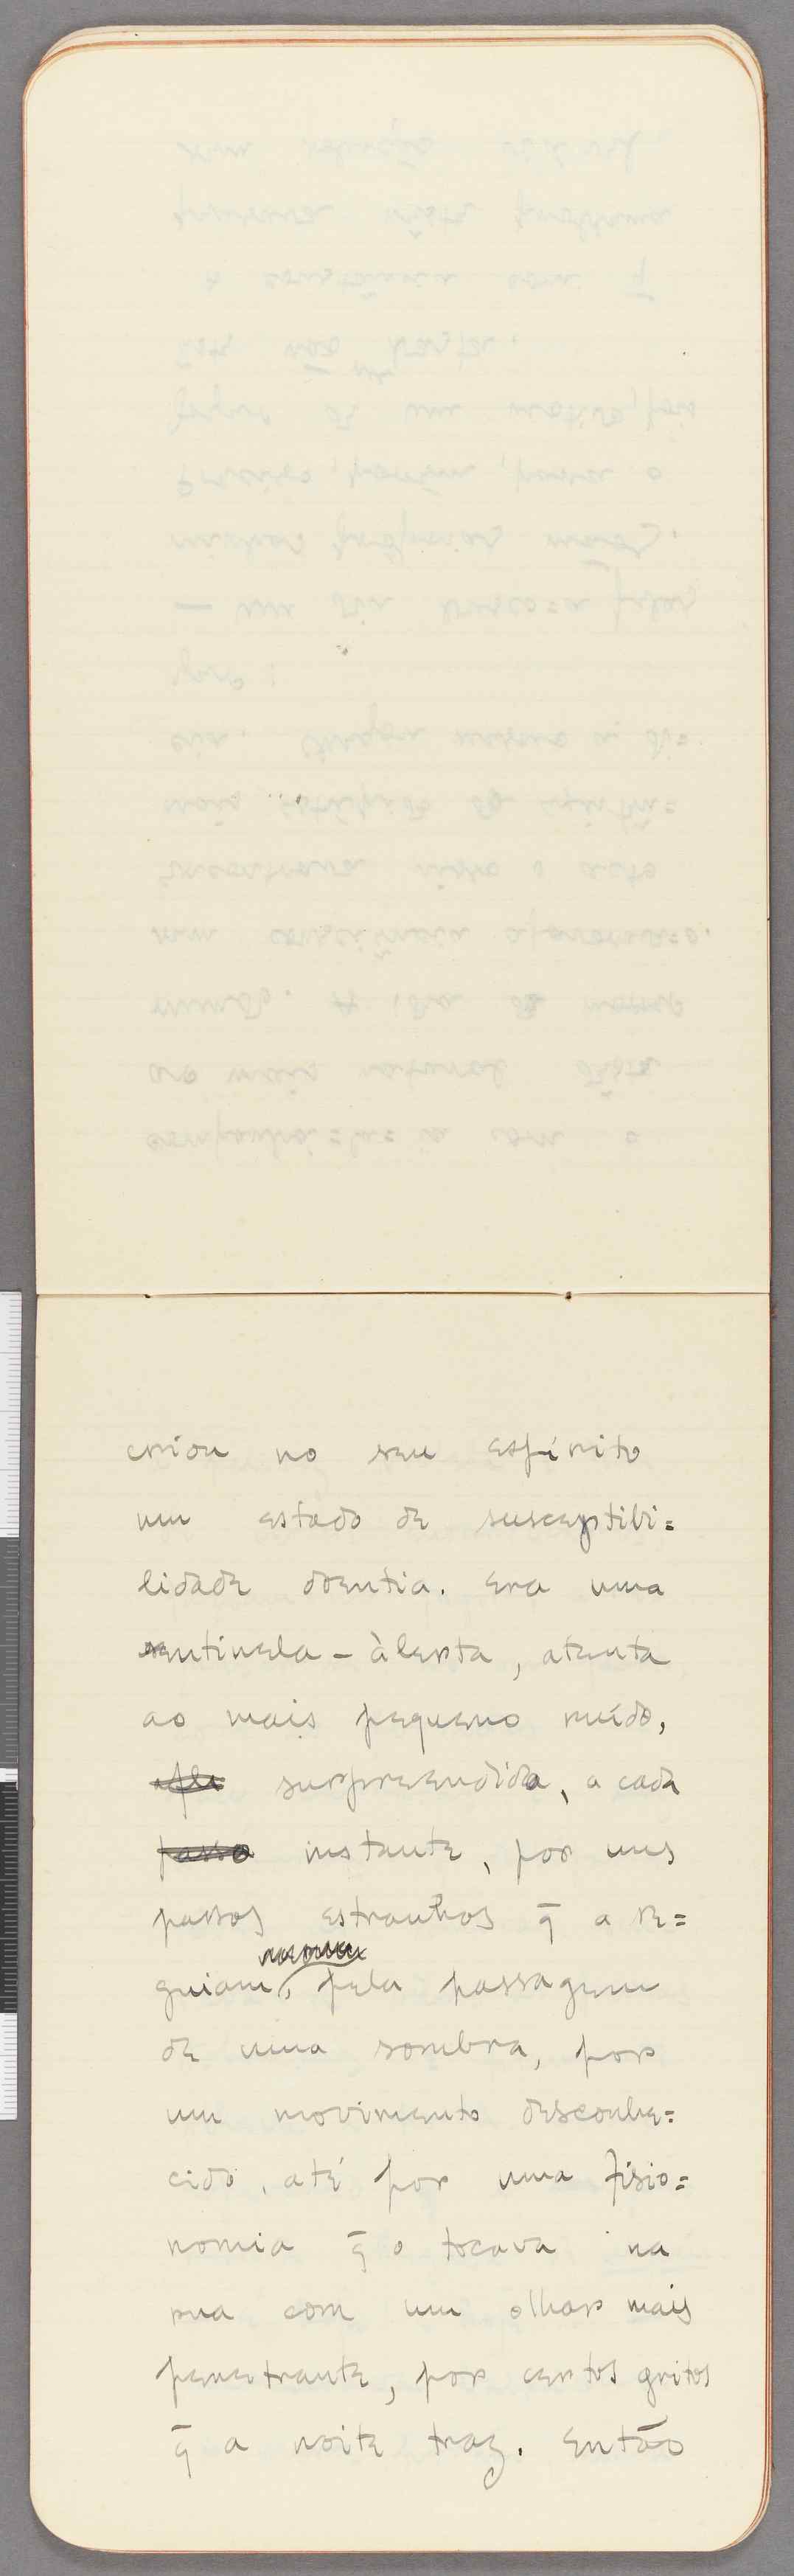 criou no seu espírito
um estado de susceptibi=
lidade doentia. Era uma
sentinela - àlerta, atenta
ao mais pequeno ruído,
surpreendida, a cada
passo instante, por uns
passos estranhos q̄ a se=
guiam, pela passagem
de uma sombra, por
um movimento desconhe=
cido, até por uma fisio=
nomia q̄ o tocava na
rua com um olhar mais
penetrante, por certos gritos
q̄ a noite traz. Então